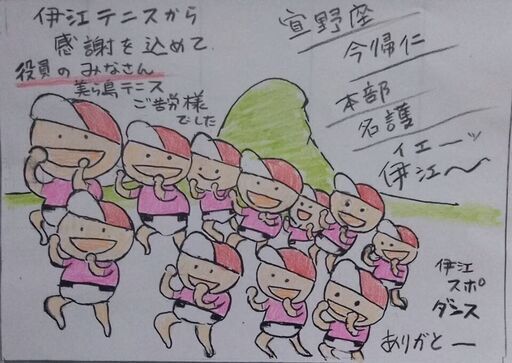 伊江テニスから
感謝を込めて
役員のみなさん
美ら島テニス
ご苦労様
でした
宜野座
今帰仁
本部
名護
イエーッ
伊江〜
伊江
スポ
ダンス
ありがとー